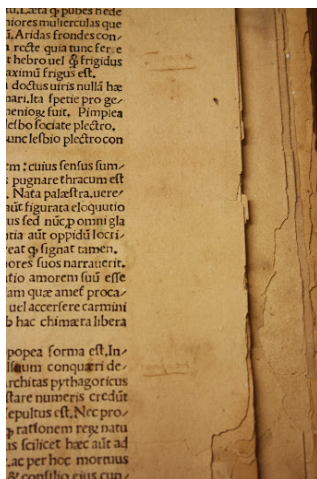 tu. Læta qꝫ pubes hede
niores mulierculas que
ũ. Aridas frondes con-
a recte quia tunc fere
t hebro uel qꝫ frigidus
aximũ frigus est.
doctus uiris nullã hæ
nari. Ita spetie pro ge-
fuit. Pimplea
lesbo sociate plectro.
unc lesbio plectro con
m: cuius sensus sum-
s pugnare thracum est
. Nata palæstra. uere
aũt figurata eloquutio
us sed nũc ꝓ omni gla
tia aũt oppidũ locri-
reat qꝫ signat tamen.
ores suos narrauerit.
tio amorem suũ esse
am quæ amet proca-
uel accersere carmini
b hac chimæra libera
popea forma est. In-
conquæri de-
rchitas pythagoricus
stare numeris credũt
epultus est. Nec pro-
ꝓ rationem rege natu
as scilicet hæc aũt ad
. ac per hoc mortuus
& consilio eius cun-